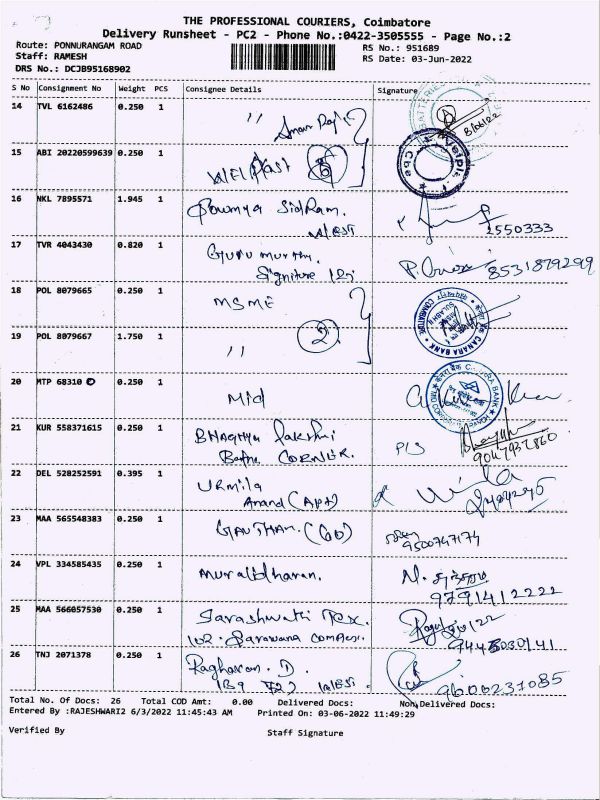 THE PROFESSIONAL COURIERS, Coimbatore
Delivery Runsheet - PC2 - Phone No.:0422-3505555 - Page No.:2
Route: PONNURANGAM ROAD RS No.: 951689
Staff: RAMESH RS Date: 03-Jun-2022
DRS No.: DCJB95168902
S No Consignment No Weight PCS Consignee Details Signature
14 TVL 6162486 0.250 1 "
15 ABI 20220599639 0.250 1
16 NKL 7895571 1.945 1 Sowmya
2550333
17 TVR 4043430 0.820 1 Guru murthi
8531879299
18 POL 8079665 0.250 1 MSME
19 POL 8079667 1.750 1 " 2
CANARA BANK
20 MTP 68310 0 0.250 1 Mid
CANARA BANK
21 KUR 558371615 0.250 1 BHAGHYA Lakshmi
CORNER.
9047937860
22 DEL 528252591 0.395 1 URmila
Anand (APt)
23 MAA 565548383 0.250 1 GAUTHAM. (60)
9500747174
24 VPL 334585435 0.250 1 muralidharan.
9791412222
25 MAA 566057530 0.250 1 Sarashwathi Tex.
102. Sarawana complex.
26 TNJ 2071378 0.250 1 Raghavan. D.
9600237085
Total No. Of Docs: 26 Total COD Amt: 0.00 Delivered Docs: Non Delivered Docs:
Entered By :RAJESHWARI2 6/3/2022 11:45:43 AM Printed On: 03-06-2022 11:49:29
Verified By Staff Signature